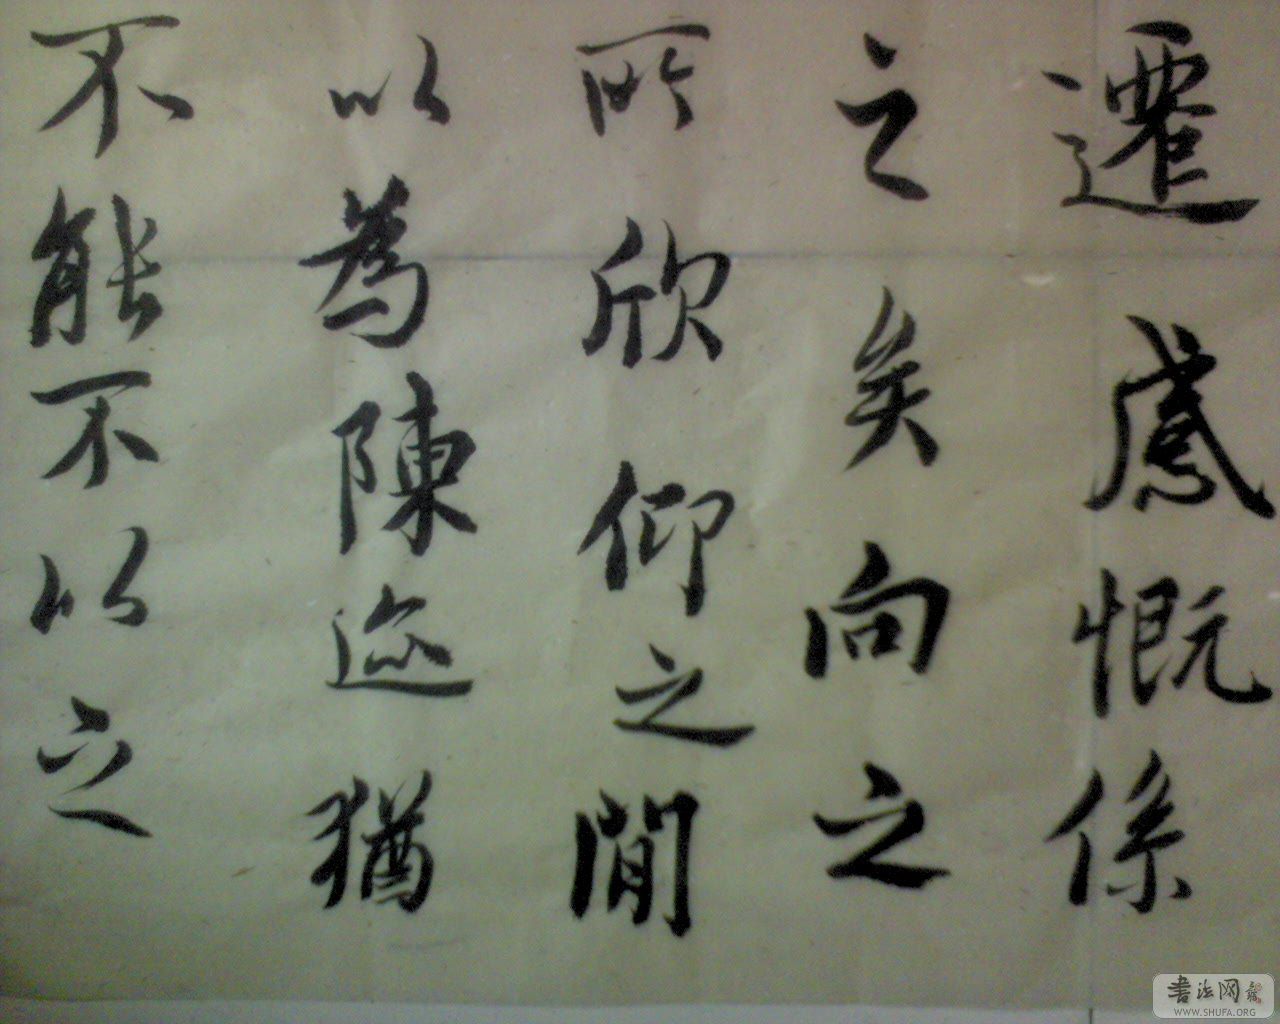 遷感慨係
之矣向之
所欣仰之間
以為陳迹猶
不能不以之
書法网
WWW.SHUFA.ORG